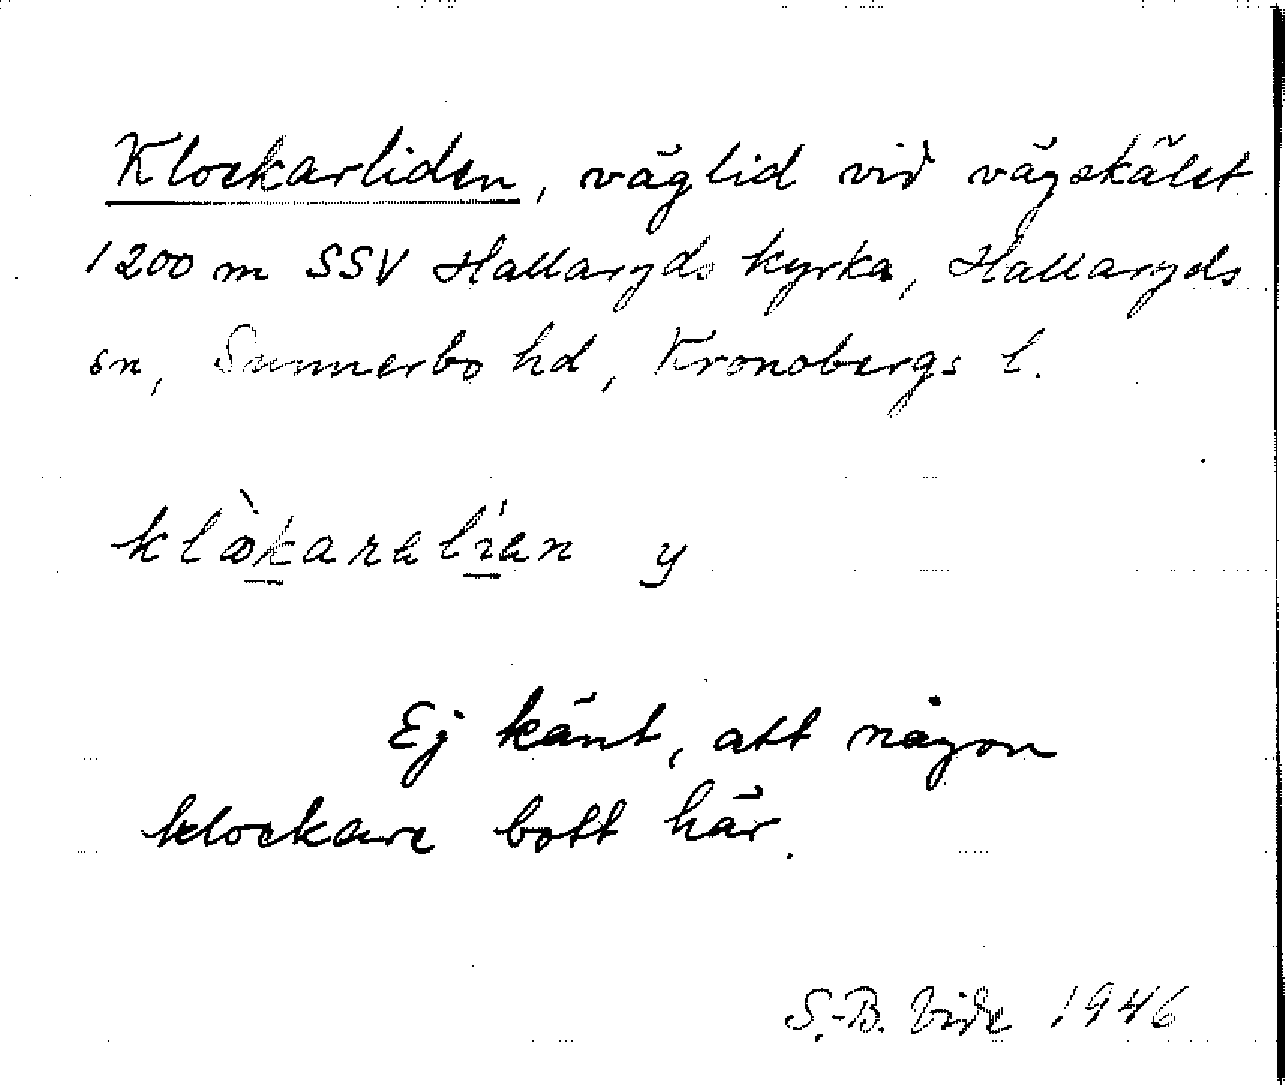 Klockarliden, väglid vid vägskälet
1200 m SSV Hallaryds kyrka, Hallaryds
sn, Sunnerbo hd, Kronobergs l.
klòkaralían y
Ej känt, att någon
klockare bott här.
S.-B. Vide 1946